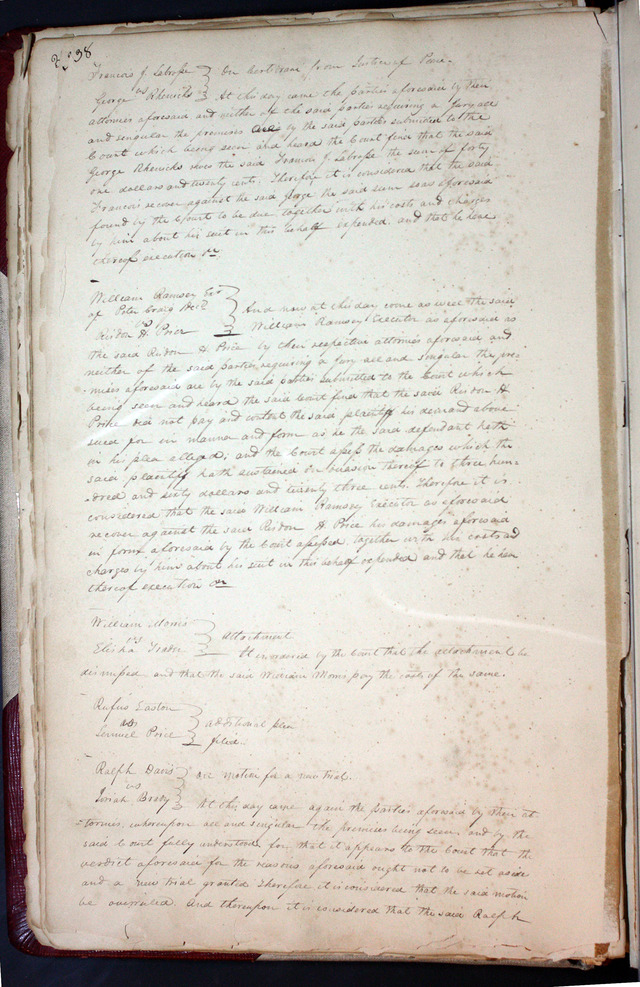 238
Francois J. Labrosse } On Certiorari from Justice of Peace.
vs
George Rhenicks } At this day came the parties aforesaid by their
attornies aforesaid and neither of the said parties requiring a Jury all
and singular the premises are by the said parties submitted to the
Court which being seen and heard the Court find that the said
George Rhenicks owes the said Francois J. Labrosse the sum of forty
one dollars and twenty cents. Therefore it is considered that the said
Francois recover against the said George the said sum so as aforesaid
found by the Court to be due together with his costs and charges
by him about his suit in this behalf expended. and that he have
thereof execution &c
William Ramsey Exr
of Peter Craig Decd
vs
Risdon H. Price } And now at this day come as well the said
William Ramsey Executor as aforesaid as
the said Risdon H. Price by their respective attornies aforesaid and
neither of the said parties requiring a Jury all and singular the pre-
mises aforesaid are by the said parties submitted to the Court which
being seen and heard the said Court find that the said Risdon H.
Price did not pay and content the said plaintiff his demand above
sued for in manner and form as he the said defendant hath
in his plea alleged; and the Court assess the damages which the
said plaintiff hath sustained on occasion thereof to three hun-
dred and sixty dollars and twenty three cents. Therefore it is
considered that the said William Ramsey Executor as aforesaid
recover against the said Risdon H. Price his damages aforesaid
in form aforesaid by the Court assessed, together with his costs and
charges by him about his suit in this behalf expended and that he have
thereof execution &c
William Morris
vs } Attachment
Elisha
It is ordered by the Court that the attachment be
dismissed and that the said William Morris pay the costs of the same.
Rufus Easton
vs } additional plea
Samuel Price } filed.
Ralph Davis } on motion for a new trial.
vs
Josiah Brady } At this day came again the parties aforesaid by their at-
tornies, whereupon all and singular the premises being seen and by the
said Court fully understood, for that it appears to the Court that the
verdict aforesaid for the reasons aforesaid ought not to be set aside
and a new trial granted Therefore it is considered that the said motion
be overruled. And thereupon it is considered that the said Ralph